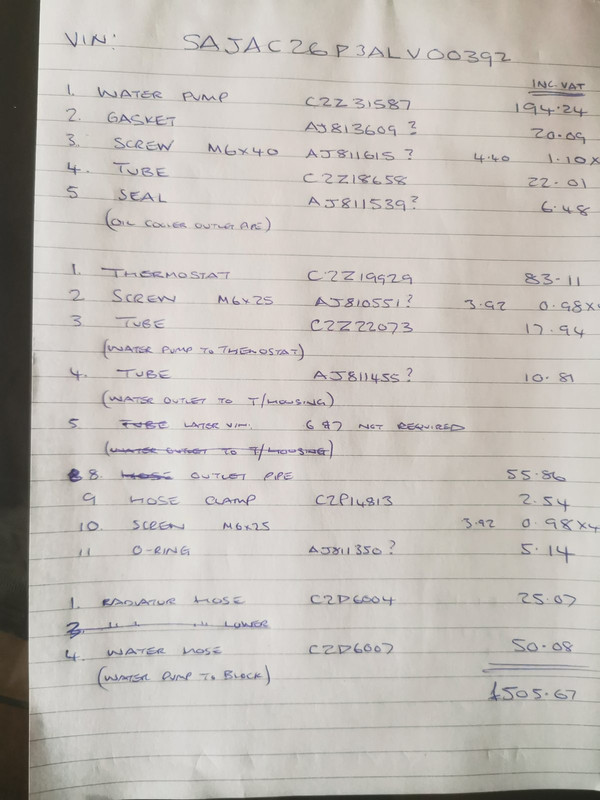 VIN: SAJAC26P3ALV00392
INC. VAT
1. WATER PUMP C2Z31587 194.24
2. GASKET AJ813609? 20.09
3. SCREW M6x40 AJ811615? 4.40 1.10x
4. TUBE C2Z18658 22.01
5 SEAL AJ811539? 6.48
(OIL COOLER OUTLET PIPE)
1. THERMOSTAT C2Z19929 83-11
2 SCREW M6x25 AJ810551? 3.92 0.98x4
3 TUBE C2Z22073 17.94
(WATER PUMP TO THEMOSTAT)
4. TUBE AJ811455? 10.81
(WATER OUTLET TO T/HOUSING)
5. TUBE LATER VIN. 687 NOT REQUIRED
(WATER OUTLET TO T/HOUSING)
8. HOSE OUTLET PIPE 55.86
9 HOSE CLAMP C2P14813 2.54
10. SCREW M6x25 3.92 0.98x4
11 O-RING AJ811350? 5.14
1. RADIATOR HOSE C2D6004 25.07
2. " " " " LOWER
4. WATER HOSE C2D6007 50.08
(WATER PUMP TO BLOCK)
£505.67